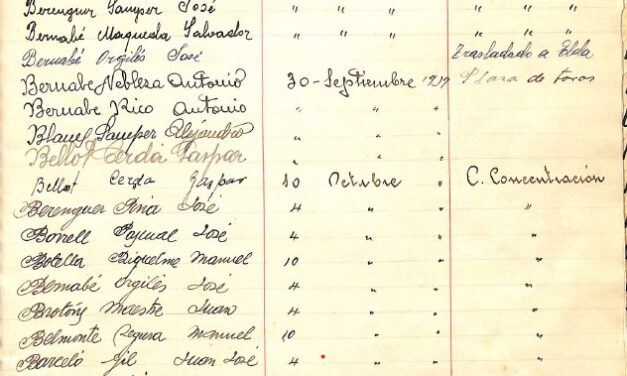 Berenguer Samper José " " " " " "
Bernabé Maqueda Salvador " " " " " "
Bernabé Orgilés José Trasladado a Elda
Bernabe Nebleza Antonio 30 - Septiembre 1939 Plaza de toros
Bernabe Rico Antonio " " "
Blanes Samper Alejandro " " "
Bellot Cerdá Gaspar " "
Bellot Cerda Gaspar 10 Octubre " C. Concentración
Berenguer José 4 " " "
Borrell Pascual José 4 " " "
Botella Riquelme Manuel 10 " " "
Bernabé Orgilés José 4 " " "
Brotóns Maestre Juan 4 " " "
Belmonte Segura Manuel 10 " " "
Barceló Gil Juan José 4 " " "